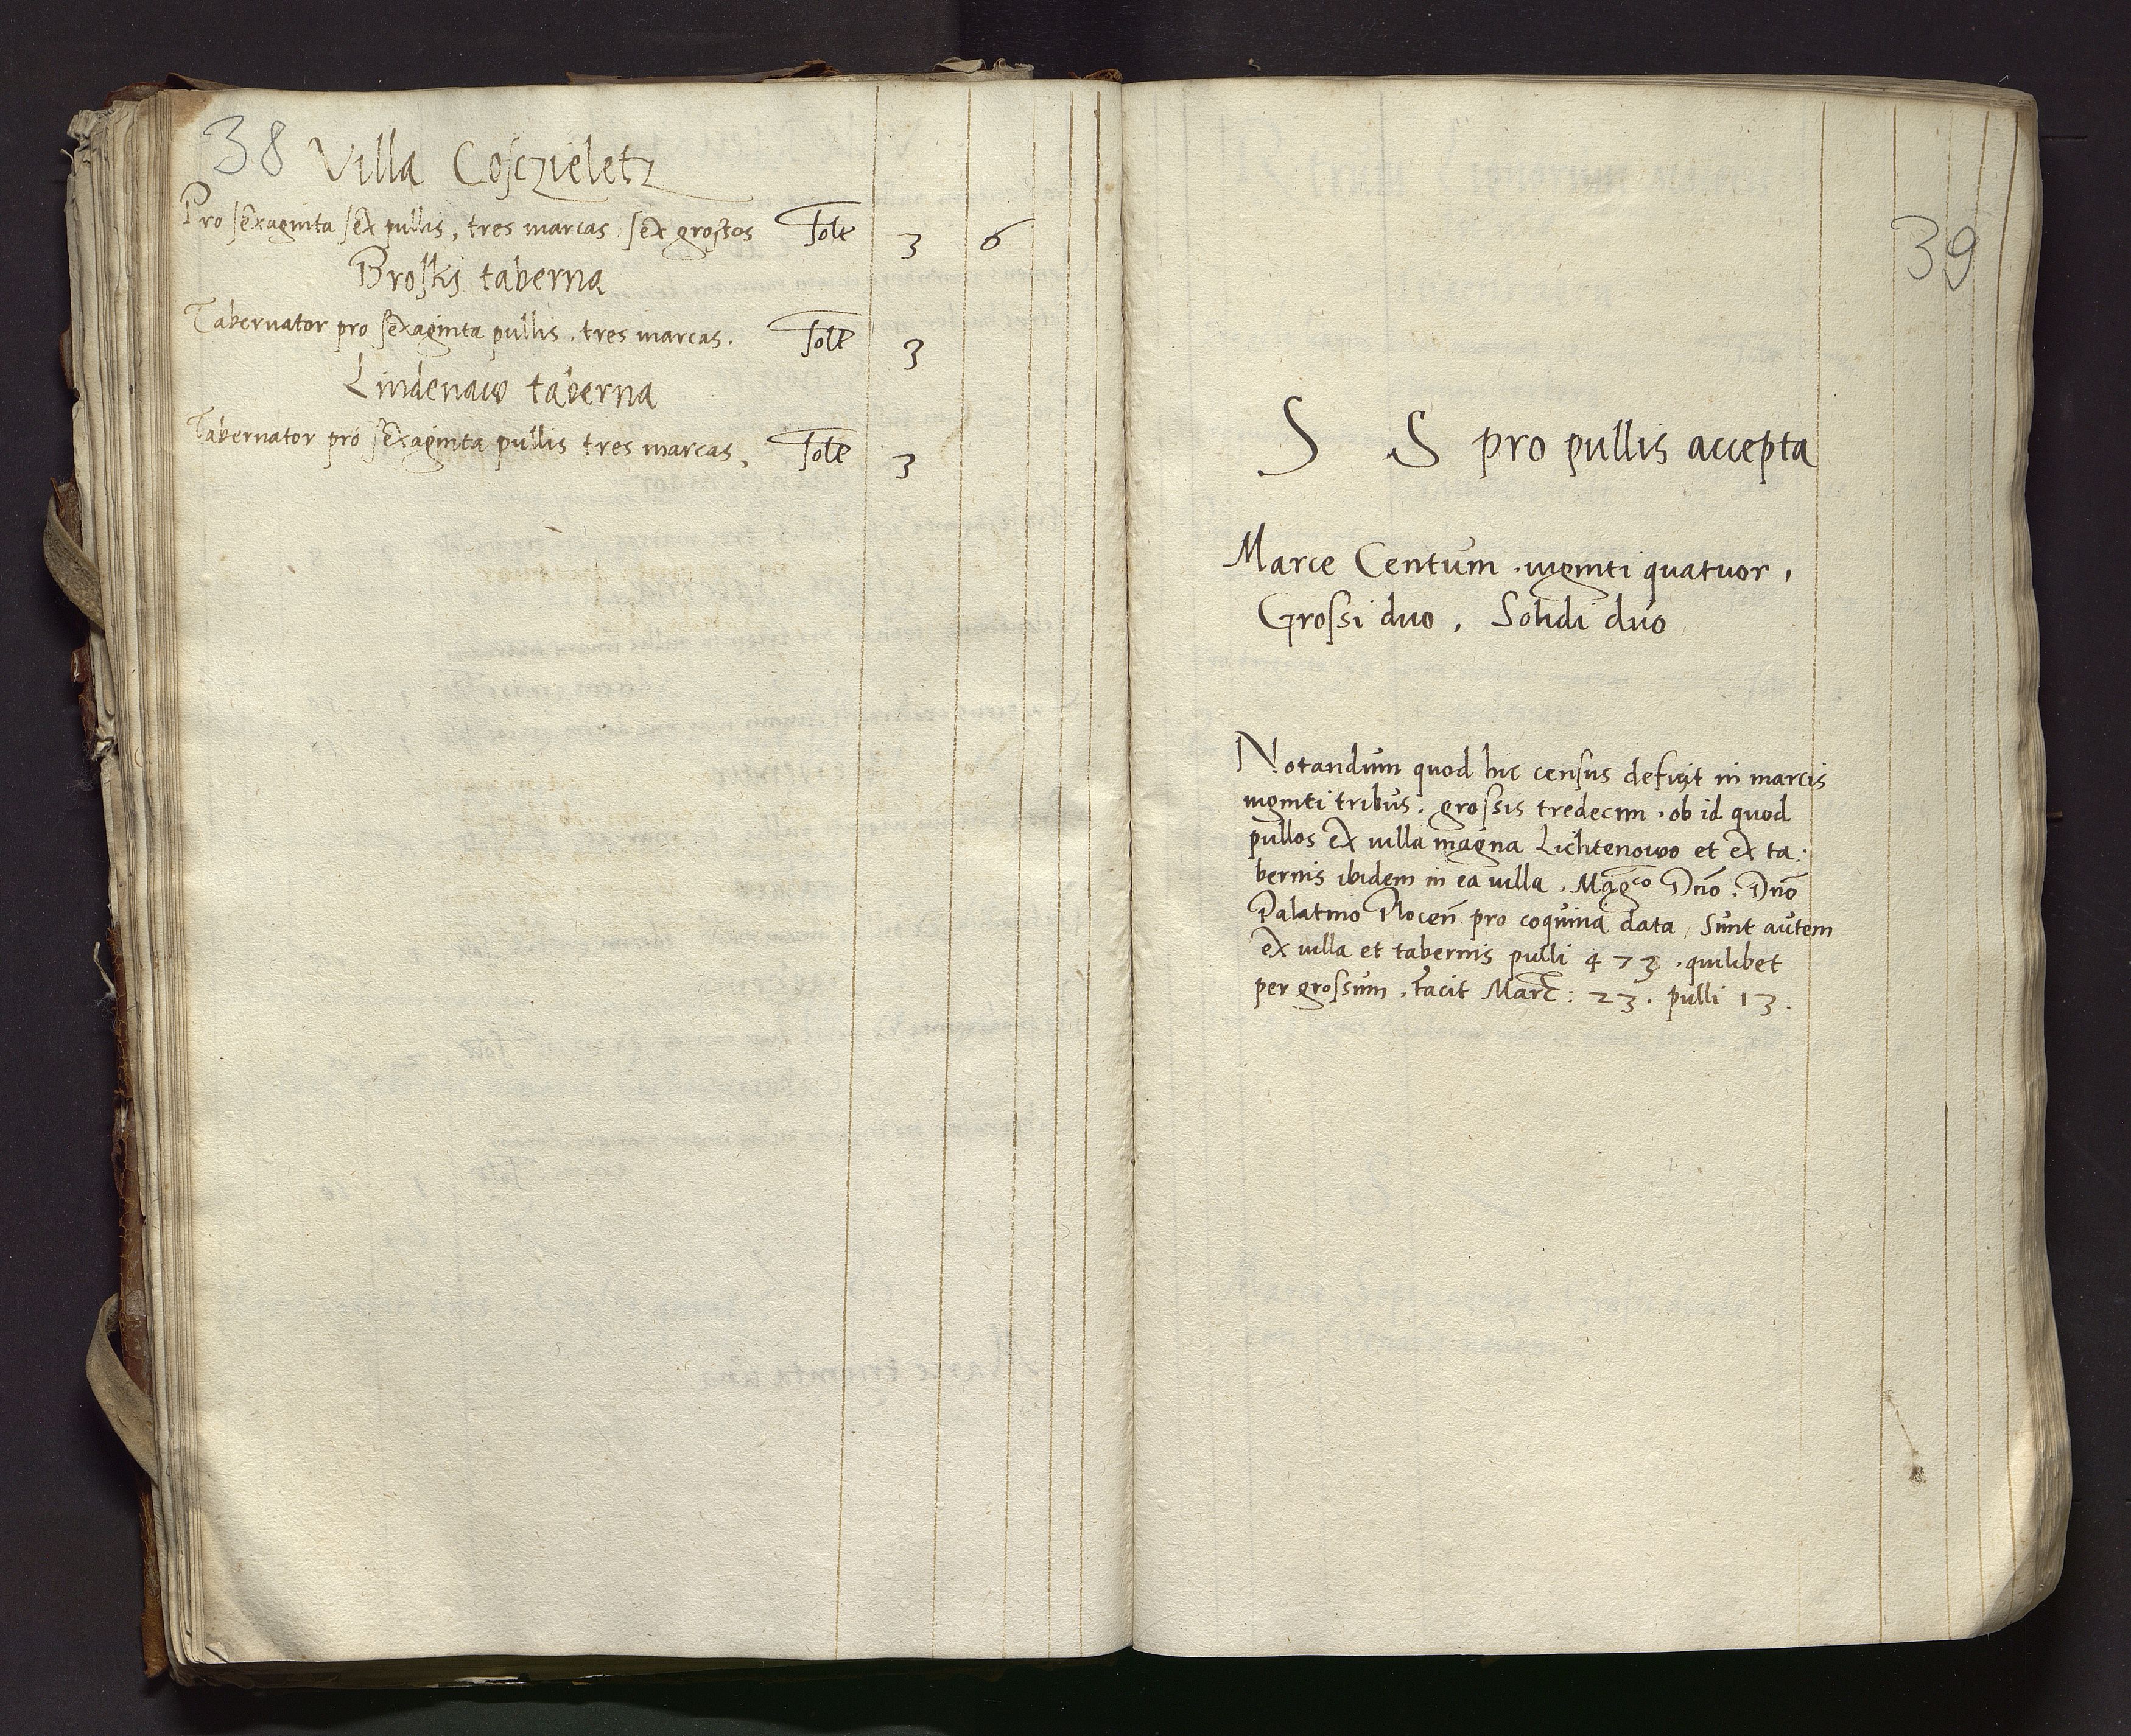 38 Villa Cosczieletz
Pro sexaginta sex pullis, tres marcas, sex grossos Solt 3 6
Broskj taberna
Tabernator pro sexaginta pullis, tres marcas. Solt 3
Lindenaw taberna
Tabernator pro sexaginta pullis tres marcas, Solt 3
39
S S pro pullis accepta
Marce Centum viginti quatuor,
Grossi duo, Solidi duo
Notandum quod hic census deficit in marcis
viginti tribus, grossis tredecim, ob id quod
pullos ex villa magna Lichtenowo et ex ta:
bernis ibidem in ea villa, Mag:co Dno, Dno
Palatino Plocen pro coquina data, Sunt autem
ex villa et tabernis pulli 473, quilibet
per grossum, facit Marc: 23. pulli 13.